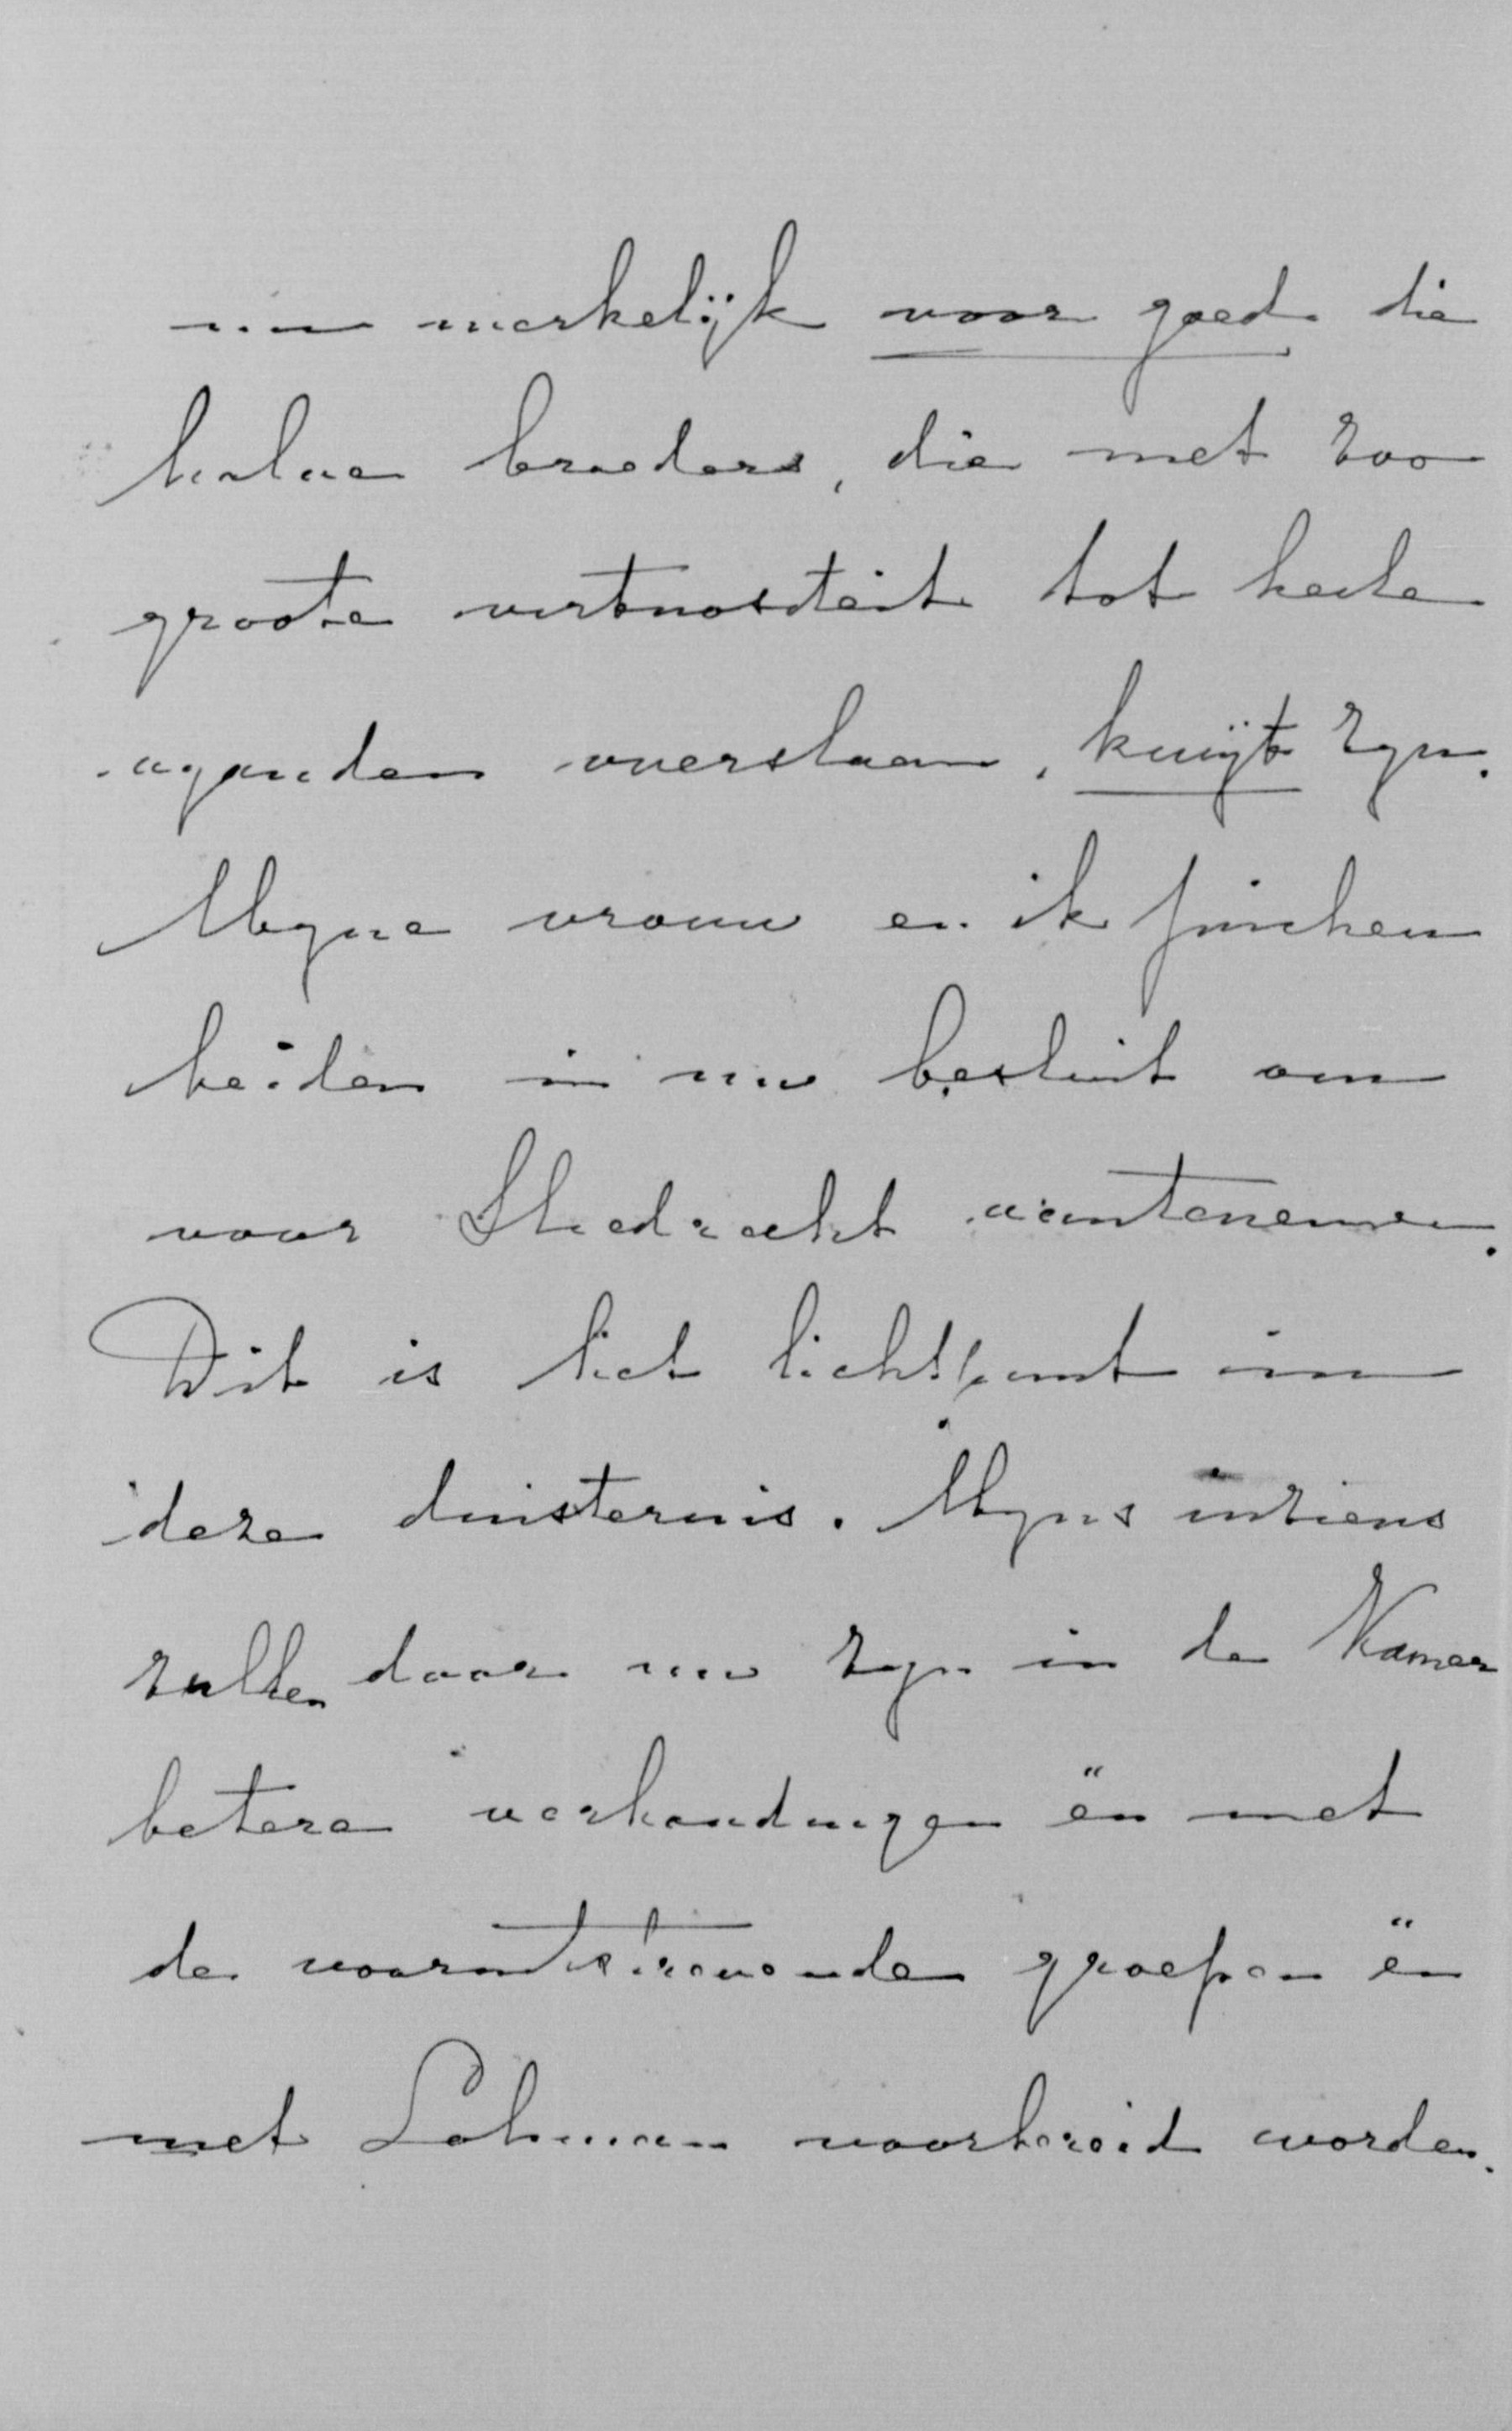 nu merkelijk voor goed die
halve broeders, die met zoo
groote virtuositeit tot heele
vijanden overslaan, kwijt zyn.
Myne vrouw en ik juichen
beiden in uw besluit om
voor Sliedrecht aantenemen.
Dit is het lichtpunt in
deze duisternis. Myns inziens
zullen door uw zyn in de Kamer
betere verhoudingen én met
de vooruitstrevende groepen én
met Lohman voorbereid worden.